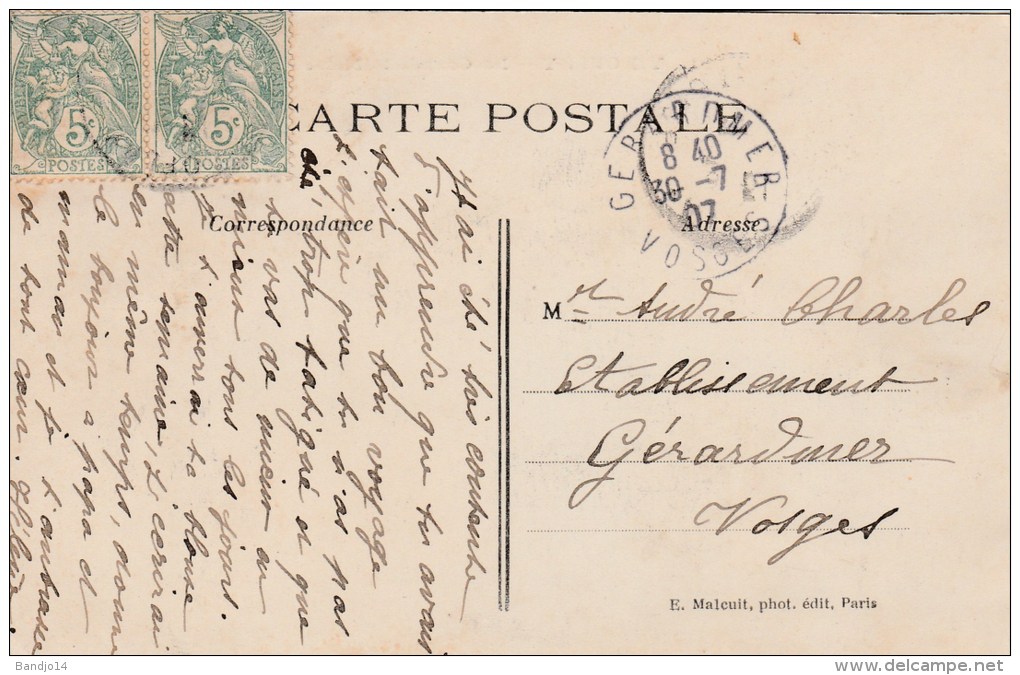 CARTE POSTALE
Correspondance
Adresse
GERARDMER
8 40
30 -7
07
VOSGES
5c
POSTES
5c
POSTES
J'ai été très contente
d'apprendre que tu avais
fait un bon voyage
J'espère que tu n'as pas
été trop fatigué et que
tu vas de mieux en
mieux tous les jours.
Je t'enverrai ta blouse
cette semaine, j'écrirai
en même temps, donne
le bonjour à papa et
maman et je t'embrasse
de tout cœur.
Mr André Charles
Etablissement
Gérardmer
Vosges
E. Malcuit, phot. édit, Paris
Bandjo14
http://www.delcampe.net